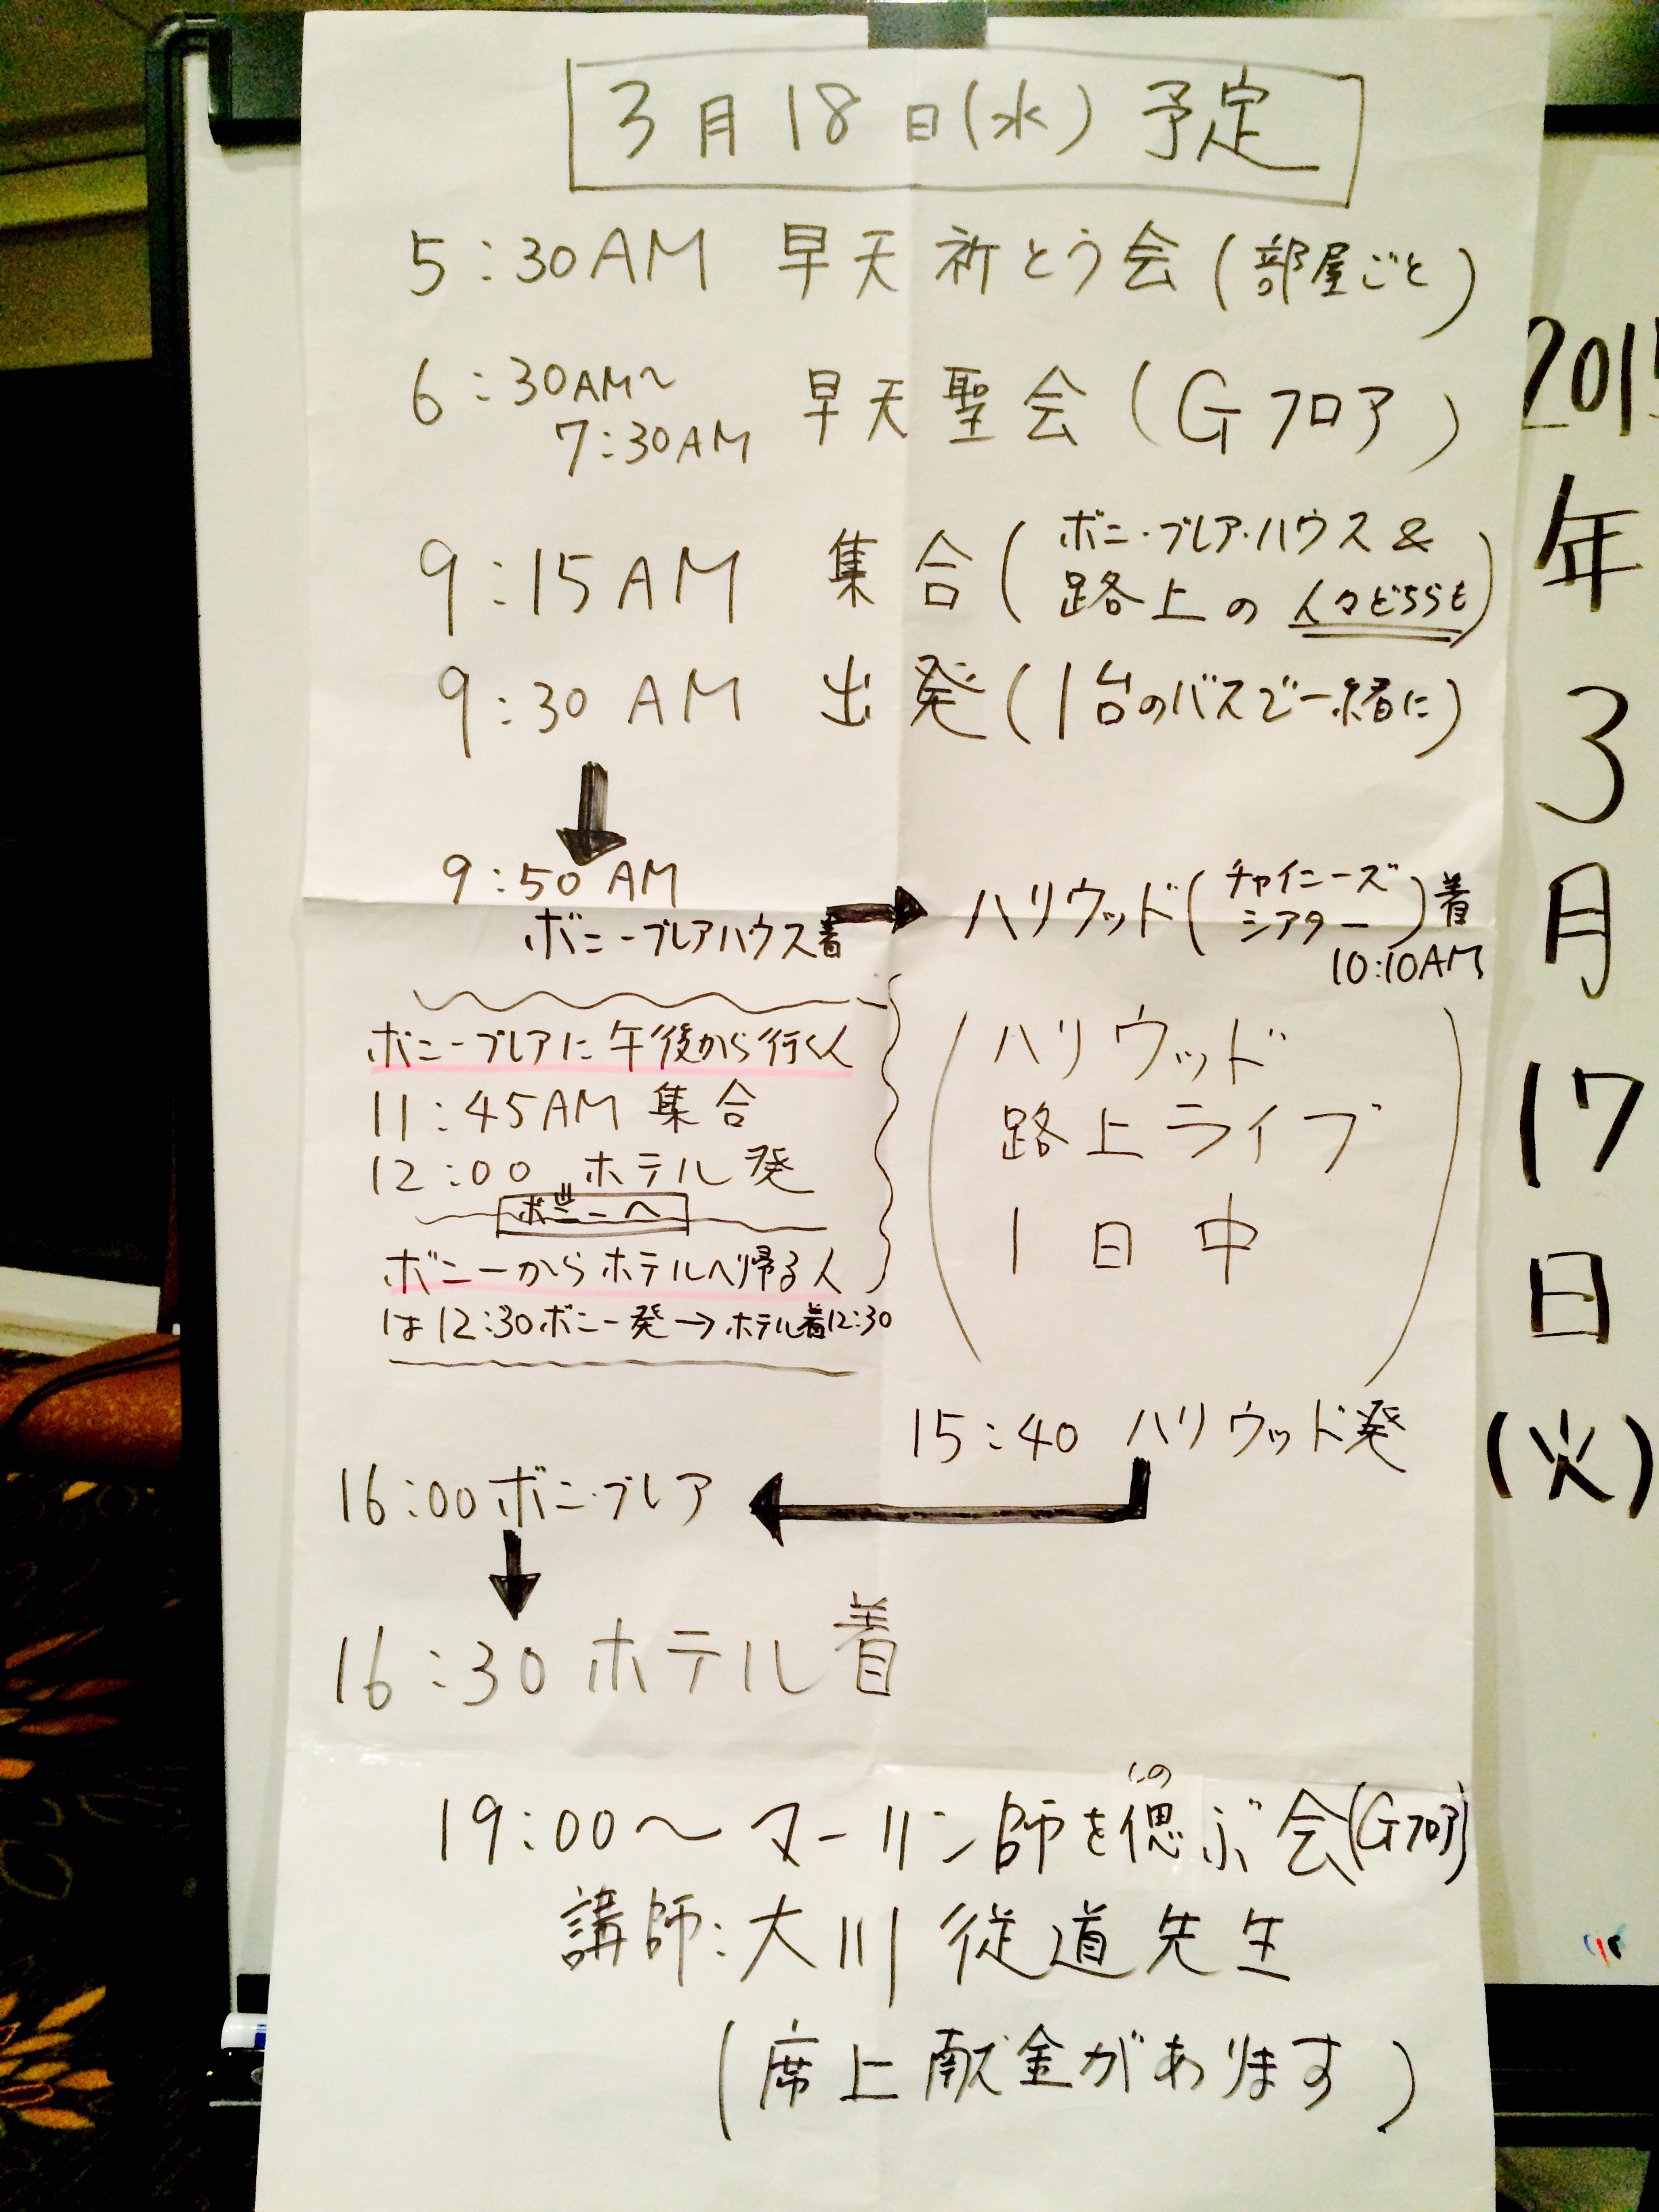 3月18日(水)予定
5:30AM 早天祈とう会(部屋ごと)
6:30AM～
7:30AM 早天聖会(Gフロア)
9:15AM 集合(ボニ・ブレア・ハウス&
路上の人々どちらも)
9:30AM 出発(1台のバスで一緒に)
9:50AM
ボニーブレアハウス着
ハリウッド(チャイニーズ
シアター)着
10:10AM
ボニーブレアに午後から行く人
11:45AM 集合
12:00 ホテル発
ボニーへ
ボニーからホテルへ帰る人
は12:30ボニー発→ホテル着12:30
(ハリウッド
路上ライブ
1日中)
15:40 ハリウッド発
16:00ボニ・ブレア
16:30ホテル着
19:00～マーリン師を偲ぶ会(Gフロア)
しの
講師:大川従道先生
(席上献金があります)
2015
年
3
月
17
日
(火)